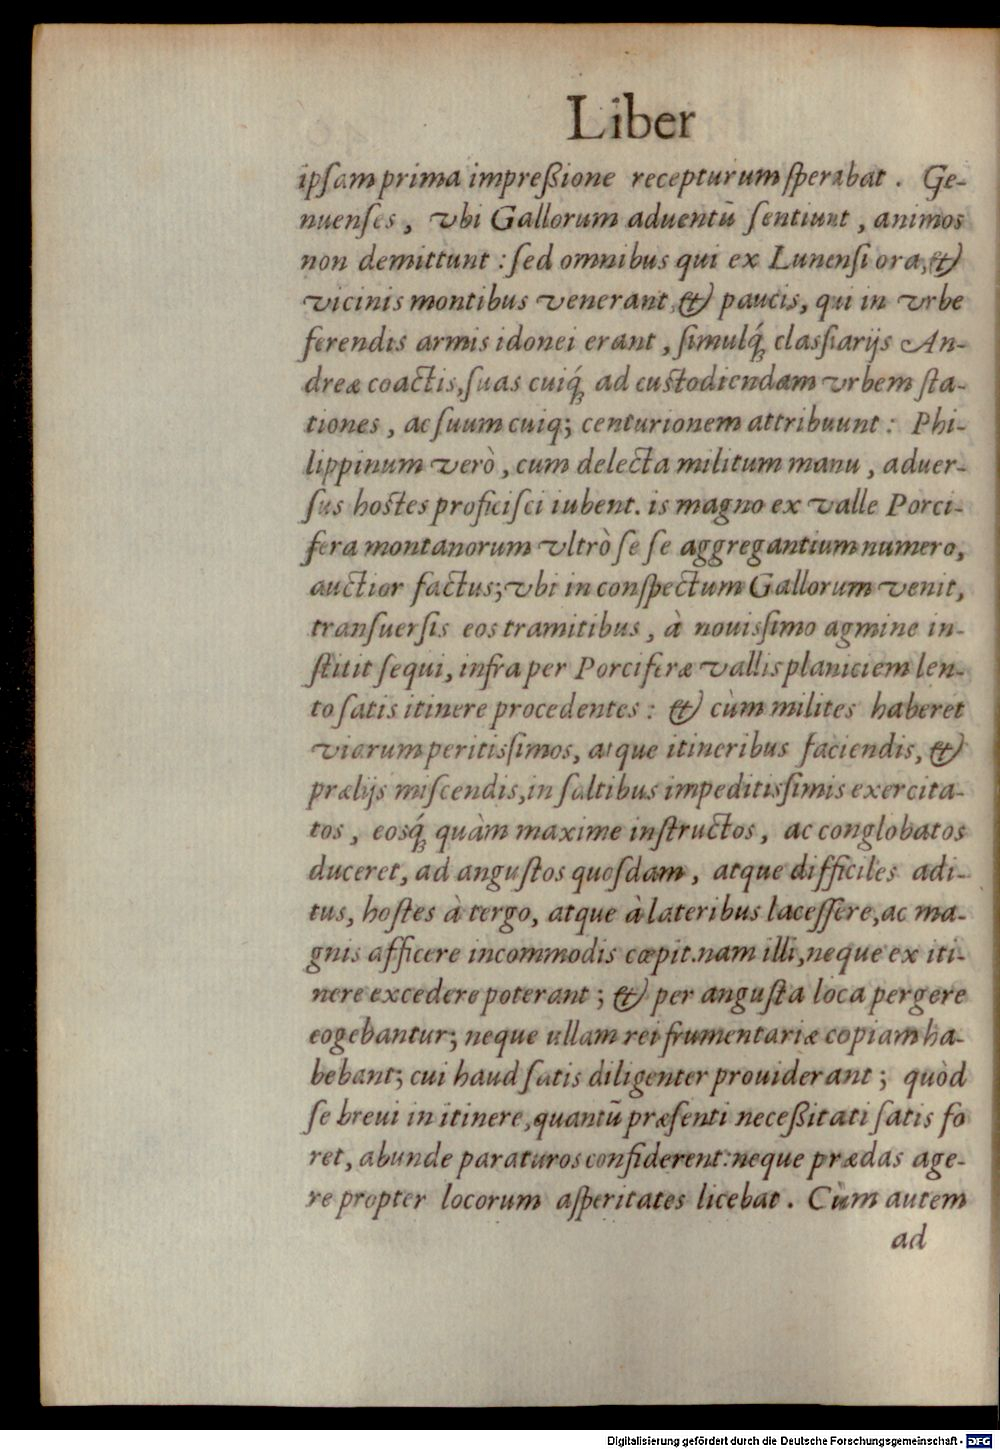 Liber
ipſam prima impreßione recepturum ſperabat. Ge-
nuenſes, vbi Gallorum aduentū ſentiunt, animos
non demittunt: ſed omnibus qui ex Lunenſi ora, &
vicinis montibus venerant, & paucis, qui in vrbe
ferendis armis idonei erant, ſimulq́; claſsiarijs An-
dreæ coactis, ſuas cuiq́; ad custodiendam vrbem ſta-
tiones, ac ſuum cuiq; centurionem attribuunt: Phi-
lippinum verò, cum delecta militum manu, aduer-
ſus hostes proficiſci iubent. is magno ex valle Porci-
fera montanorum vltrò ſe ſe aggregantium numero,
auctior factus; vbi in conſpectum Gallorum venit,
tranſuerſis eos tramitibus, à nouiſsimo agmine in-
ſtitit ſequi, infra per Porciferæ vallis planiciem len-
to ſatis itinere procedentes: & cùm milites haberet
viarum peritiſsimos, atque itineribus faciendis, &
prælijs miſcendis, in ſaltibus impeditiſsimis exercita-
tos, eosq́; quàm maxime inſtructos, ac conglobatos
duceret, ad anguſtos quoſdam, atque difficiles adi-
tus, hoſtes à tergo, atque à lateribus laceſſere, ac ma-
gnis afficere incommodis cœpit. nam illi, neque ex iti-
nere excedere poterant; & per anguſta loca pergere
cogebantur; neque ullam rei frumentariæ copiam ha-
bebant; cui haud ſatis diligenter prouiderant; quòd
ſe breui in itinere, quantū præſenti neceßitati ſatis fo
ret, abunde paraturos confiderent: neque prædas age-
re propter locorum aſperitates licebat. Cùm autem
ad
Digitalisierung gefördert durch die Deutsche Forschungsgemeinschaft - DFG